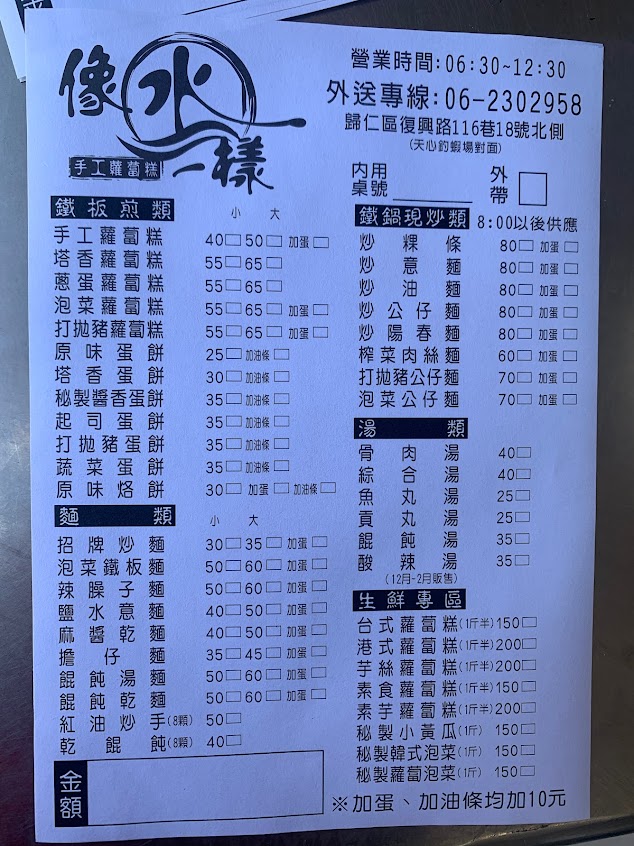 像水一樣
手工蘿蔔糕
營業時間:06:30~12:30
外送專線:06-2302958
歸仁區復興路116巷18號北側
(天心釣蝦場對面)
內用桌號 外帶□
鐵板煎類 小 大
手工蘿蔔糕 40□ 50□ 加蛋□
塔香蘿蔔糕 55□ 65□
蔥蛋蘿蔔糕 55□ 65□
泡菜蘿蔔糕 55□ 65□ 加蛋□
打拋豬蘿蔔糕 55□ 65□ 加蛋□
原味蛋餅 25□ 加油條□
塔香蛋餅 30□ 加油條□
秘製醬香蛋餅 35□ 加油條□
起司蛋餅 35□ 加油條□
打拋豬蛋餅 35□ 加油條□
蔬菜蛋餅 35□ 加油條□
原味烙餅 30□ 加蛋□ 加油條□
麵類 小 大
招牌炒麵 30□ 35□ 加蛋□
泡菜鐵板麵 50□ 60□ 加蛋□
辣臊子麵 50□ 60□ 加蛋□
鹽水意麵 40□ 50□ 加蛋□
麻醬乾麵 40□ 50□ 加蛋□
擔仔麵 35□ 45□ 加蛋□
餛飩湯麵 50□ 60□ 加蛋□
餛飩乾麵 50□ 60□ 加蛋□
紅油炒手(8顆) 50□
乾餛飩(8顆) 40□
金額
鐵鍋現炒類 8:00以後供應
炒粿條 80□ 加蛋□
炒意麵 80□ 加蛋□
炒油麵 80□ 加蛋□
炒公仔麵 80□ 加蛋□
炒陽春麵 80□ 加蛋□
榨菜肉絲麵 60□ 加蛋□
打拋豬公仔麵 70□ 加蛋□
泡菜公仔麵 70□ 加蛋□
湯類
骨肉湯 40□
綜合湯 40□
魚丸湯 25□
貢丸湯 25□
餛飩湯 35□
酸辣湯 35□
(12月-2月販售)
生鮮專區
台式蘿蔔糕(1斤半)150□
港式蘿蔔糕(1斤半)200□
芋絲蘿蔔糕(1斤半)200□
素食蘿蔔糕(1斤半)150□
素芋蘿蔔糕(1斤半)200□
秘製小黃瓜(1斤) 150□
秘製韓式泡菜(1斤) 150□
秘製蘿蔔泡菜(1斤) 150□
※加蛋、加油條均加10元